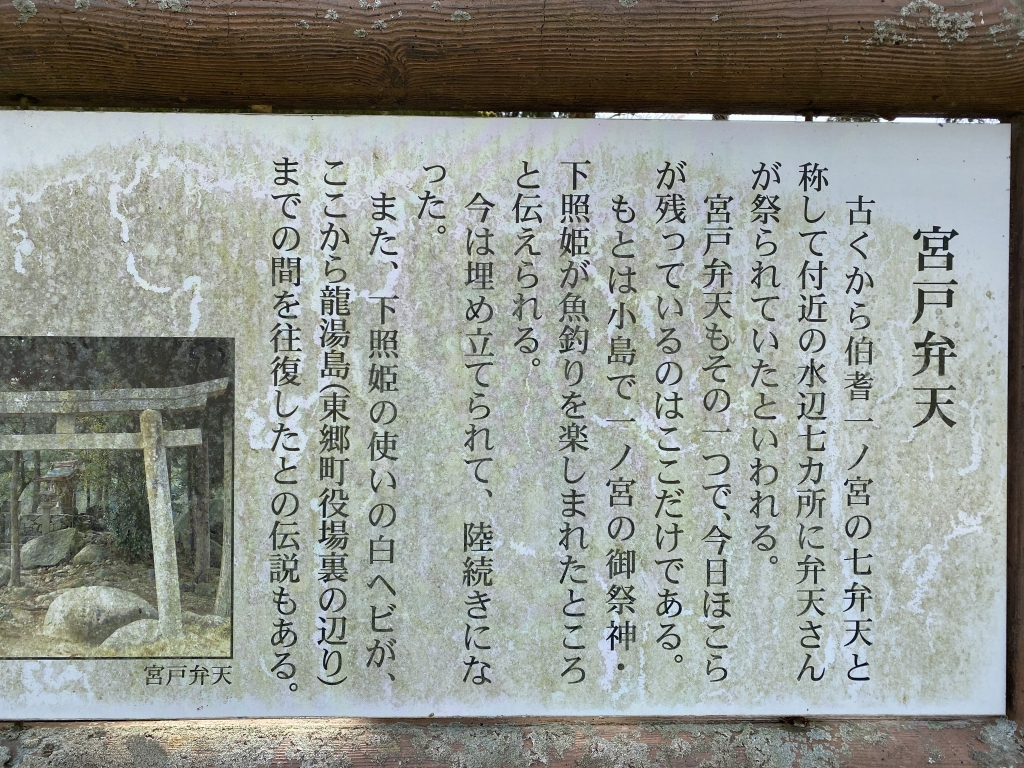 宮戸弁天
古くから伯耆一ノ宮の七弁天と
称して付近の水辺七カ所に弁天さん
が祭られていたといわれる。
宮戸弁天もその一つで、今日ほこら
が残っているのはここだけである。
もとは小島で一ノ宮の御祭神・
下照姫が魚釣りを楽しまれたところ
と伝えられる。
今は埋め立てられて、陸続きにな
った。
また、下照姫の使いの白ヘビが、
ここから龍湯島(東郷町役場裏の辺り)
までの間を往復したとの伝説もある。
宮戸弁天